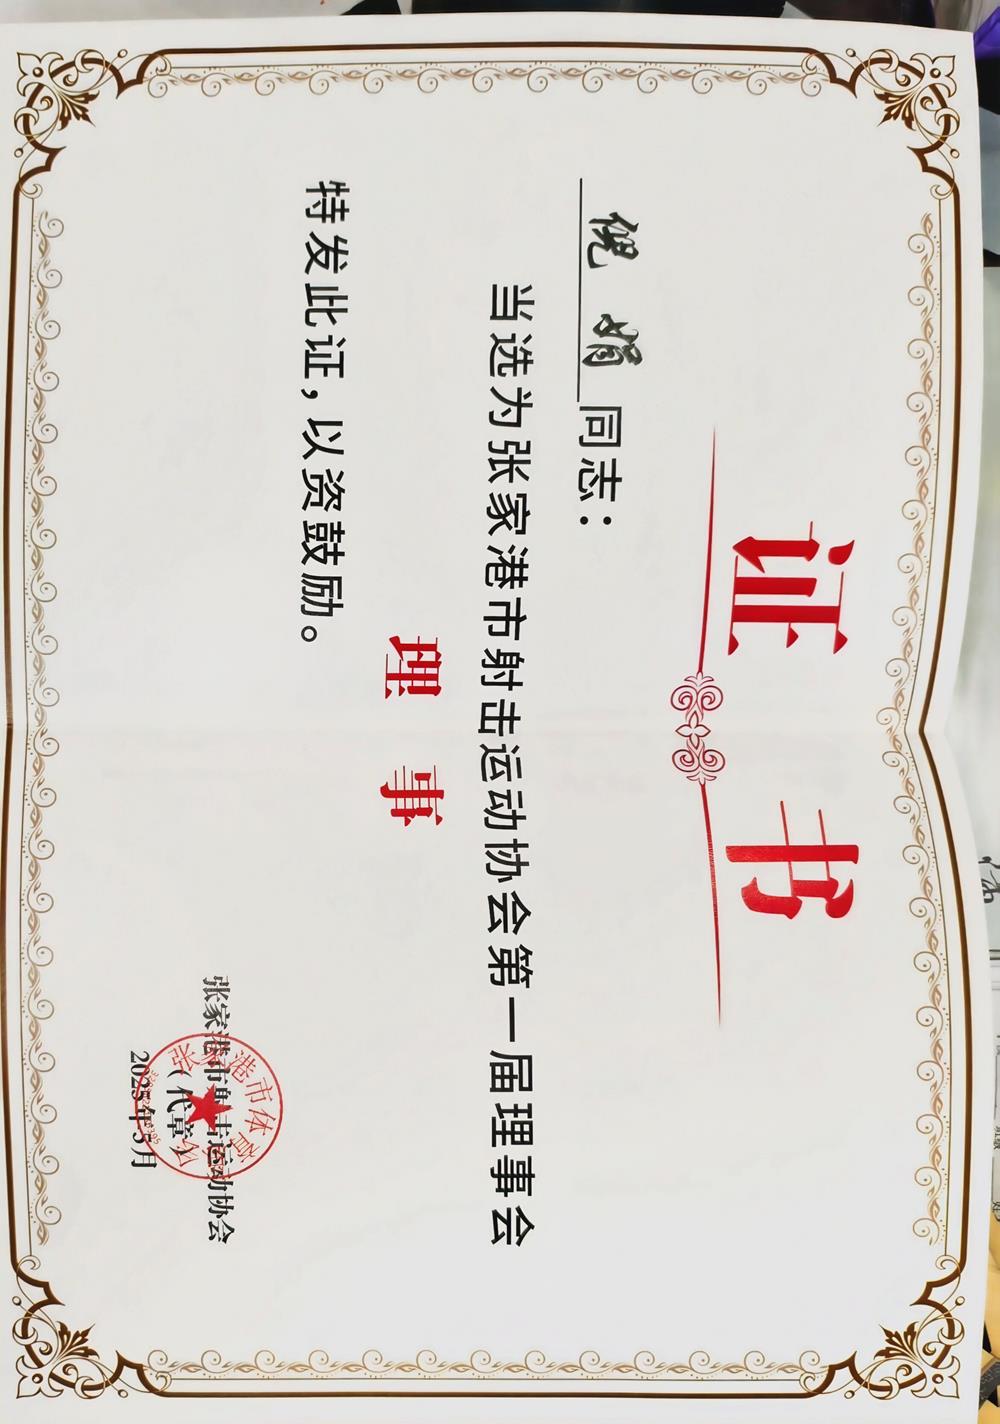 证书
倪娟同志：
当选为张家港市射击运动协会第一届理事会
理事
特发此证，以资鼓励。
张家港市射击运动协会
（代章）
2025年5月